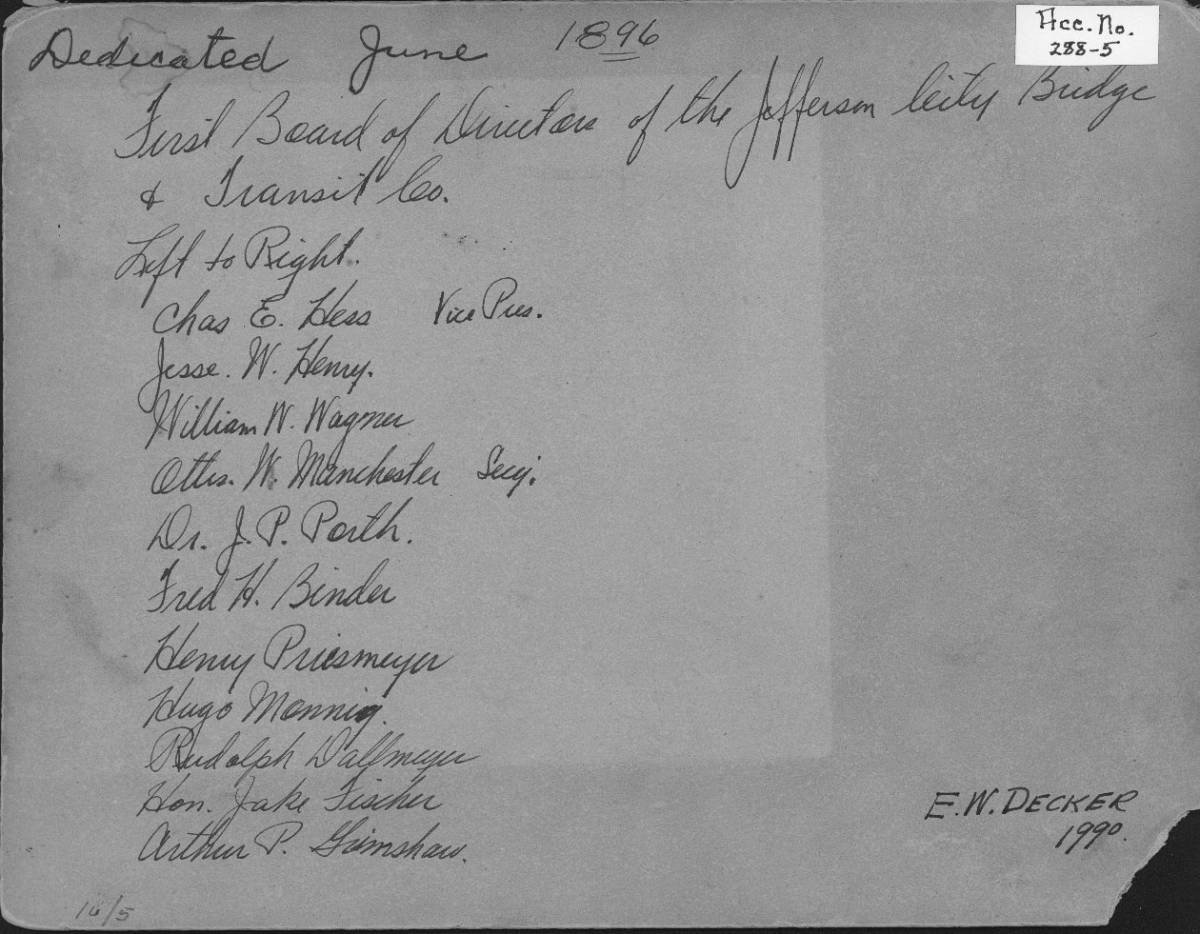 Dedicated June 1896
Acc. No.
288-5
First Board of Directors of the Jefferson City Bridge
& Transit Co.
Left to Right.
Chas E. Hess Vice Pres.
Jesse. W. Henry.
William W. Wagner
Ottis. W. Manchester Secy.
Dr. J. P. Porth.
Fred H. Binder
Henry Priesmeyer
Hugo Monnig.
Rudolph Dallmeyer
Hon. Jake Fischer
Arthur P. Grimshaw.
E.W. DECKER
1990.
16/5